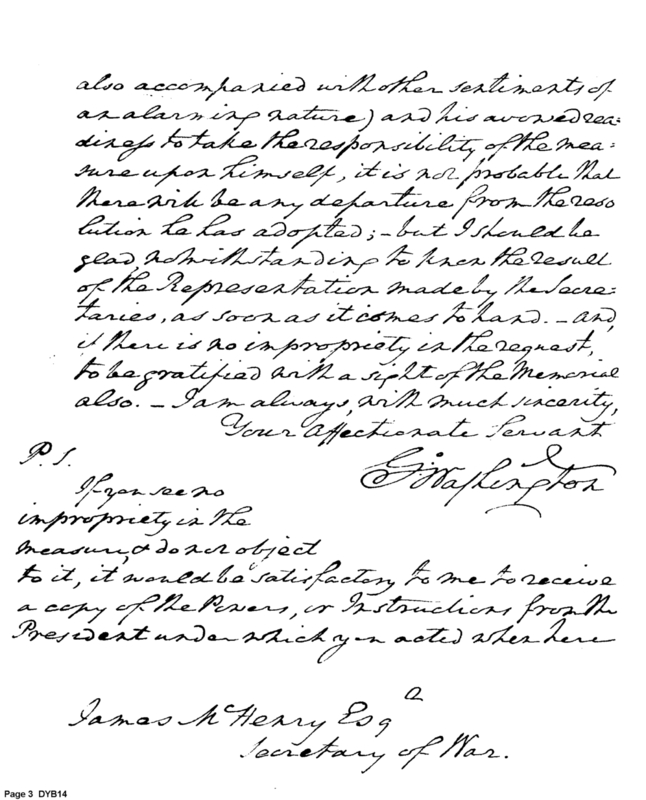 also accompanied with other sentiments of
an alarming nature) and his avowed rea=
diness to take the responsibility of the mea=
sure upon himself, it is not probable that
there will be any departure from the reso
lution he has adopted; - but I should be
glad notwithstanding to know the result
of the Representation made by the Secre=
taries, as soon as it comes to hand. - and,
if there is no impropriety in the request,
to be gratified with a sight of the Memorial
also. - I am always, with much sincerity,
Your Affectionate Servant
Go: Washington
P.S.
If you see no
impropriety in the
measure, & do not object
to it, it would be satisfactory to me to receive
a copy of the Powers, or Instructions from the
President under which you acted when here
James McHenry Esqr
Secretary of War.
Page 3 DYB14